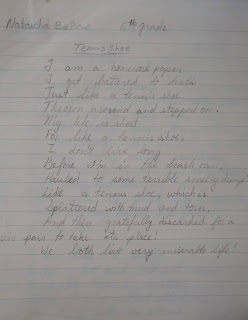 Natasha 6th grade
Tennis Shoe
I am a homework paper,
I get battered to death
Just like a tennis shoe
Thrown around and stepped on.
My life is short
For like a tennis shoe,
I don't live long
Before I'm in the trash can,
Hauled to some terrible lonely dump!
Like a tennis shoe, which is
Splattered with mud and torn,
And then gratefully discarded for a
new pair to take its place!
We both live very miserable life!